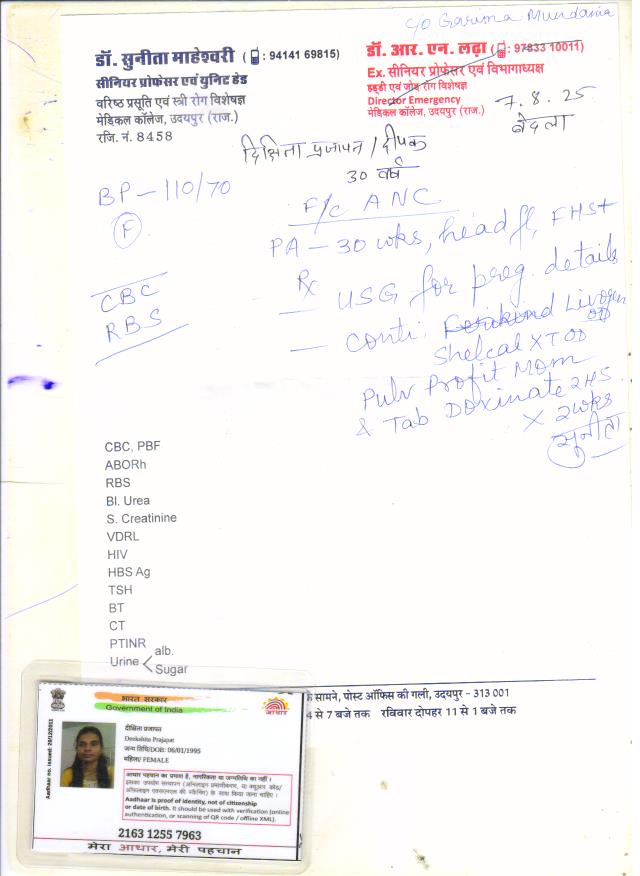 c/o Garima Mundania
डॉ. सुनीता माहेश्वरी ( : 94141 69815)
सीनियर प्रोफेसर एवं युनिट हेड
वरिष्ठ प्रसूति एवं स्त्री रोग विशेषज्ञ
मेडिकल कॉलेज, उदयपुर (राज.)
रजि. नं. 8458
डॉ. आर. एन. लढ़ा ( : 97833 10011)
Ex. सीनियर प्रोफेसर एवं विभागाध्यक्ष
हड्डी एवं जोड़ रोग विशेषज्ञ
Director Emergency
मेडिकल कॉलेज, उदयपुर (राज.)
7.8.25
बेदला
दिक्षिता प्रजापत / दीपक
30 वर्ष
BP - 110/70
F
F/c ANC
PA - 30 wks, head fl, FHS+
CBC
RBS
Rx
— USG for preg. details
— Conti. Livogen OD
Shelcal XT OD
Pulv Profit Mom
& Tab Doxinate 2HS
X 2wks
सुनीता
CBC, PBF
ABORh
RBS
Bl. Urea
S. Creatinine
VDRL
HIV
HBS Ag
TSH
BT
CT
PTINR
Urine < alb.
Sugar
के सामने, पोस्ट ऑफिस की गली, उदयपुर - 313 001
4 से 7 बजे तक रविवार दोपहर 11 से 1 बजे तक
भारत सरकार
Government of India
आधार
Aadhaar no. issued: 29/12/2011
दीक्षिता प्रजापत
Deekshita Prajapat
जन्म तिथि/DOB: 06/01/1995
महिला/ FEMALE
आधार पहचान का प्रमाण है, नागरिकता या जन्मतिथि का नहीं।
इसका उपयोग सत्यापन (ऑनलाइन प्रमाणीकरण, या क्यूआर कोड/
ऑफ़लाइन एक्सएमएल की स्कैनिंग) के साथ किया जाना चाहिए।
Aadhaar is proof of identity, not of citizenship
or date of birth. It should be used with verification (online
authentication, or scanning of QR code / offline XML).
2163 1255 7963
मेरा आधार, मेरी पहचान